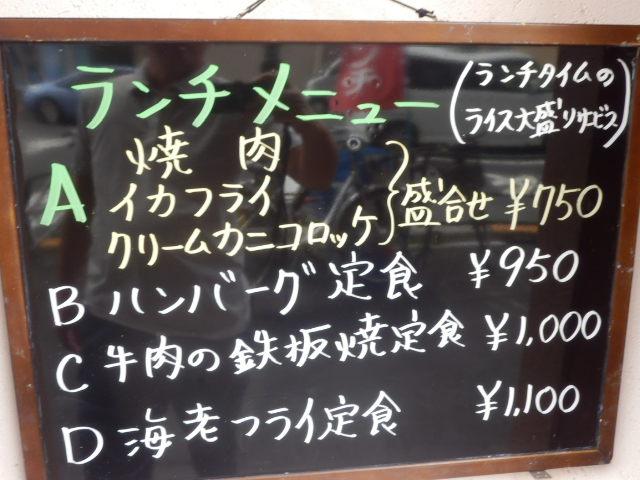 ランチメニュー
(ランチタイムの
ライス大盛りサービス)
A 焼肉
イカフライ
クリームカニコロッケ
盛合せ ¥750
B ハンバーグ定食 ¥950
C 牛肉の鉄板焼定食 ¥1,000
D 海老フライ定食 ¥1,100